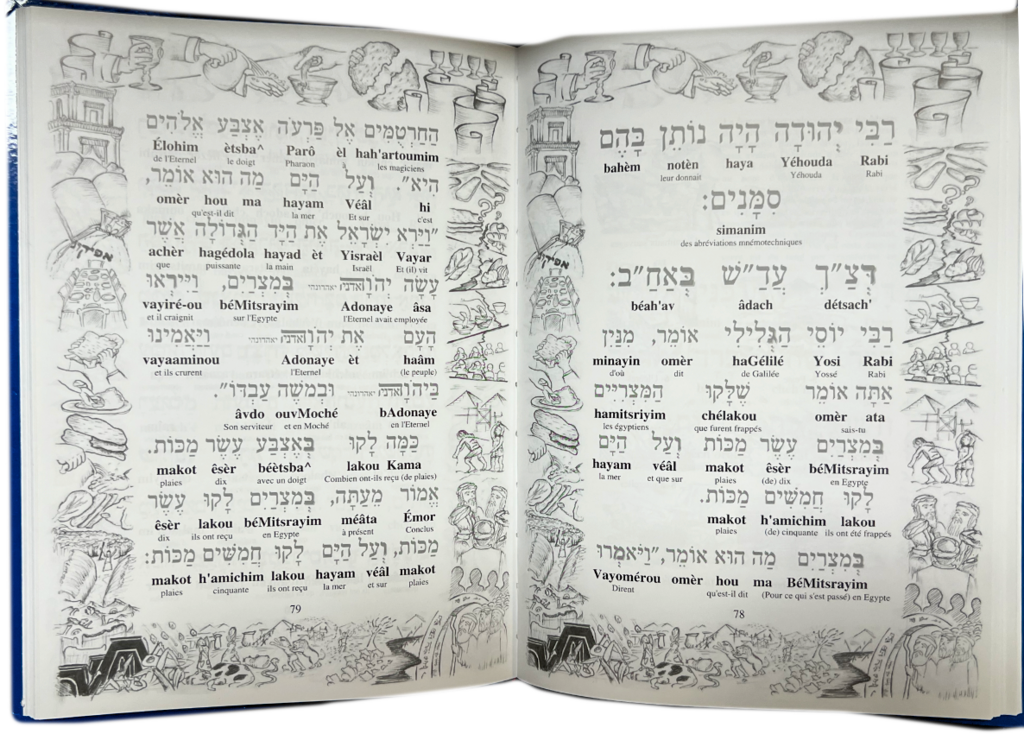 רַבִּי יְהוּדָה הָיָה נוֹתֵן בָּהֶם
bahèm notèn haya Yéhouda Rabi
leur donnait Yéhouda Rabi
סִמָּנִים:
simanim
des abréviations mnémotechniques
דְּצַ"ךְ עֲדַ"שׁ בְּאַחַ"ב:
béah'av âdach détsach'
רַבִּי יוֹסֵי הַגְּלִילִי אוֹמֵר, מִנַּיִן
minayin omèr haGélilé Yosi Rabi
d'où dit de Galilée Yossé Rabi
אַתָּה אוֹמֵר שֶׁלָּקוּ הַמִּצְרִיִּים
hamitsriyim chélakou omèr ata
les égyptiens que furent frappés sais-tu
בְּמִצְרַיִם עֶשֶׂר מַכּוֹת וְעַל הַיָּם
hayam véâl makot êsèr béMitsrayim
la mer et que sur plaies (de) dix en Egypte
לָקוּ חֲמִשִּׁים מַכּוֹת.
makot h'amichim lakou
plaies (de) cinquante ils ont été frappés
בְּמִצְרַיִם מַה הוּא אוֹמֵר, "וַיֹּאמְרוּ
Vayomérou omèr hou ma BéMitsrayim
Dirent qu'est-il dit (Pour ce qui s'est passé) en Egypte
78
הַחַרְטֻמִּים אֶל פַּרְעֹה אֶצְבַּע אֱלֹהִים
Élohim ètsba^ Parô èl hah'artoumim
de l'Eternel le doigt Pharaon les magiciens
הִיא". וְעַל הַיָּם מַה הוּא אוֹמֵר,
omèr hou ma hayam Véâl hi
qu'est-il dit la mer Et sur c'est
"וַיַּרְא יִשְׂרָאֵל אֶת הַיָּד הַגְּדוֹלָה אֲשֶׁר
achèr hagédola hayad èt Yisraèl Vayar
que puissante la main Israël Et (il) vit
עָשָׂה יְהֹוָה אדני יאהדונהי בְּמִצְרַיִם, וַיִּירְאוּ
vayiré-ou béMitsrayim Adonaye âsa
et il craignit sur l'Egypte l'Eternel avait employée
הָעָם אֶת יְהֹוָה אדני יאהדונהי וַיַּאֲמִינוּ
vayaaminou Adonaye èt haâm
et ils crurent l'Eternel (le peuple)
בַּיהֹוָה אדני יאהדונהי וּבְמֹשֶׁה עַבְדּוֹ".
âvdo ouvMoché bAdonaye
Son serviteur et en Moché en l'Eternel
כַּמָּה לָקוּ בְּאֶצְבַּע עֶשֶׂר מַכּוֹת.
makot êsèr béètsba^ lakou Kama
plaies dix avec un doigt Combien ont-ils reçu (de plaies)
אֱמוֹר מֵעַתָּה, בְּמִצְרַיִם לָקוּ עֶשֶׂר
êsèr lakou béMitsrayim méâta Émor
dix ils ont reçu en Egypte à présent Conclus
מַכּוֹת, וְעַל הַיָּם לָקוּ חֲמִשִּׁים מַכּוֹת:
makot h'amichim lakou hayam véâl makot
plaies cinquante ils ont reçu la mer et sur plaies
79